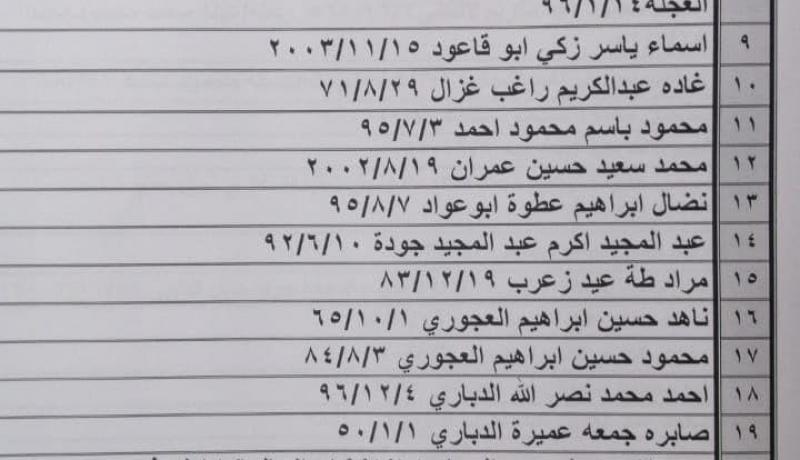 العجلة ٩٦/١/١٤
٩ اسماء ياسر زكي ابو قاعود ٢٠٠٣/١١/١٥
١٠ غاده عبدالكريم راغب غزال ٧١/٨/٢٩
١١ محمود باسم محمود احمد ٩٥/٧/٣
١٢ محمد سعيد حسين عمران ٢٠٠٢/٨/١٩
١٣ نضال ابراهيم عطوة ابوعواد ٩٥/٨/٧
١٤ عبد المجيد اكرم عبد المجيد جودة ٩٢/٦/١٠
١٥ مراد طة عيد زعرب ٨٣/١٢/١٩
١٦ ناهد حسين ابراهيم العجوري ٦٥/١٠/١
١٧ محمود حسين ابراهيم العجوري ٨٤/٨/٣
١٨ احمد محمد نصر الله الدباري ٩٦/١٢/٤
١٩ صابره جمعه عميرة الدباري ٥٠/١/١